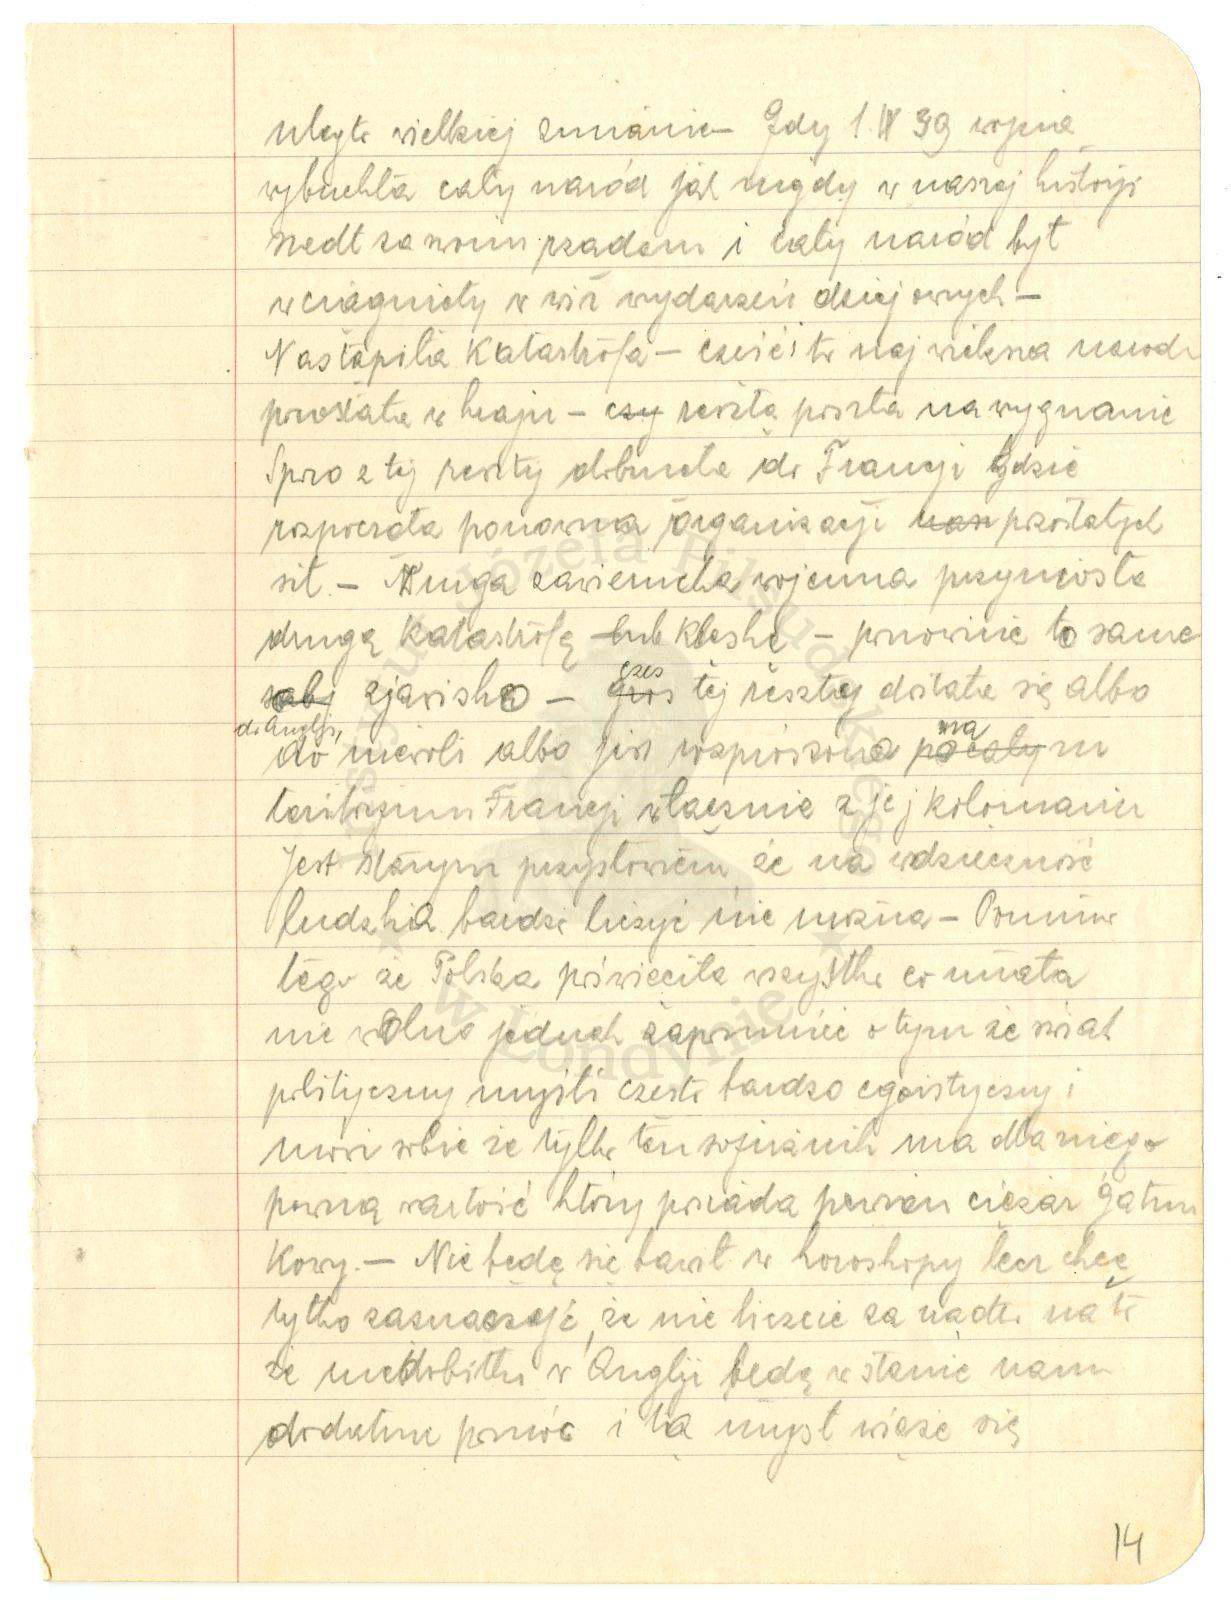 uległo wielkiej zmianie – Gdy 1.IX 39 wojna
wybuchła cały naród jak nigdy w naszej historji
szedł za swoim rządem i cały naród był
wciągnięty w wir wydarzeń dziejowych –
Nastąpiła Katastrofa – część i to największa narodu
pozostała w kraju – czy reszta poszła na wygnanie
Sporo z tej reszty dobrnęła do Francji gdzie
rozpoczęła ponowna organizacje nasz pozostałych
sił. – Druga zawierucha wojenna przyniosła
drugą Katastrófę lub Klęskę – ponownie to same
zjawisko – gros częs tej reszty dostała się albo
do Anglji,
do niewoli albo jest rozproszona po całym na
teritorjum Francji włącznie z jej koloniami
Jest starym przysłowiem, że na wdzięczność
ludzką bardzo liczyć nie można – Pomimo
tego że Polska poświęciła wszystko co miała
nie wolno jednak zapomnieć o tym że świat
polityczny myśli często bardzo egoistyczny i
mówi sobie że tylko ten sojusznik ma dla niego
pewną wartość który posiada pewien ciężar gatun
kowy. – Nie będę się bawił w horoskopy lecz chcę
tylko zaznaczyć, że nie liczcie za nadto na to
że niedobitki w Anglji będą w stanie nam
dodatnie pomóc i tą myśl wiążę się
14
Instytut Józefa Piłsudskiego
w Londynie